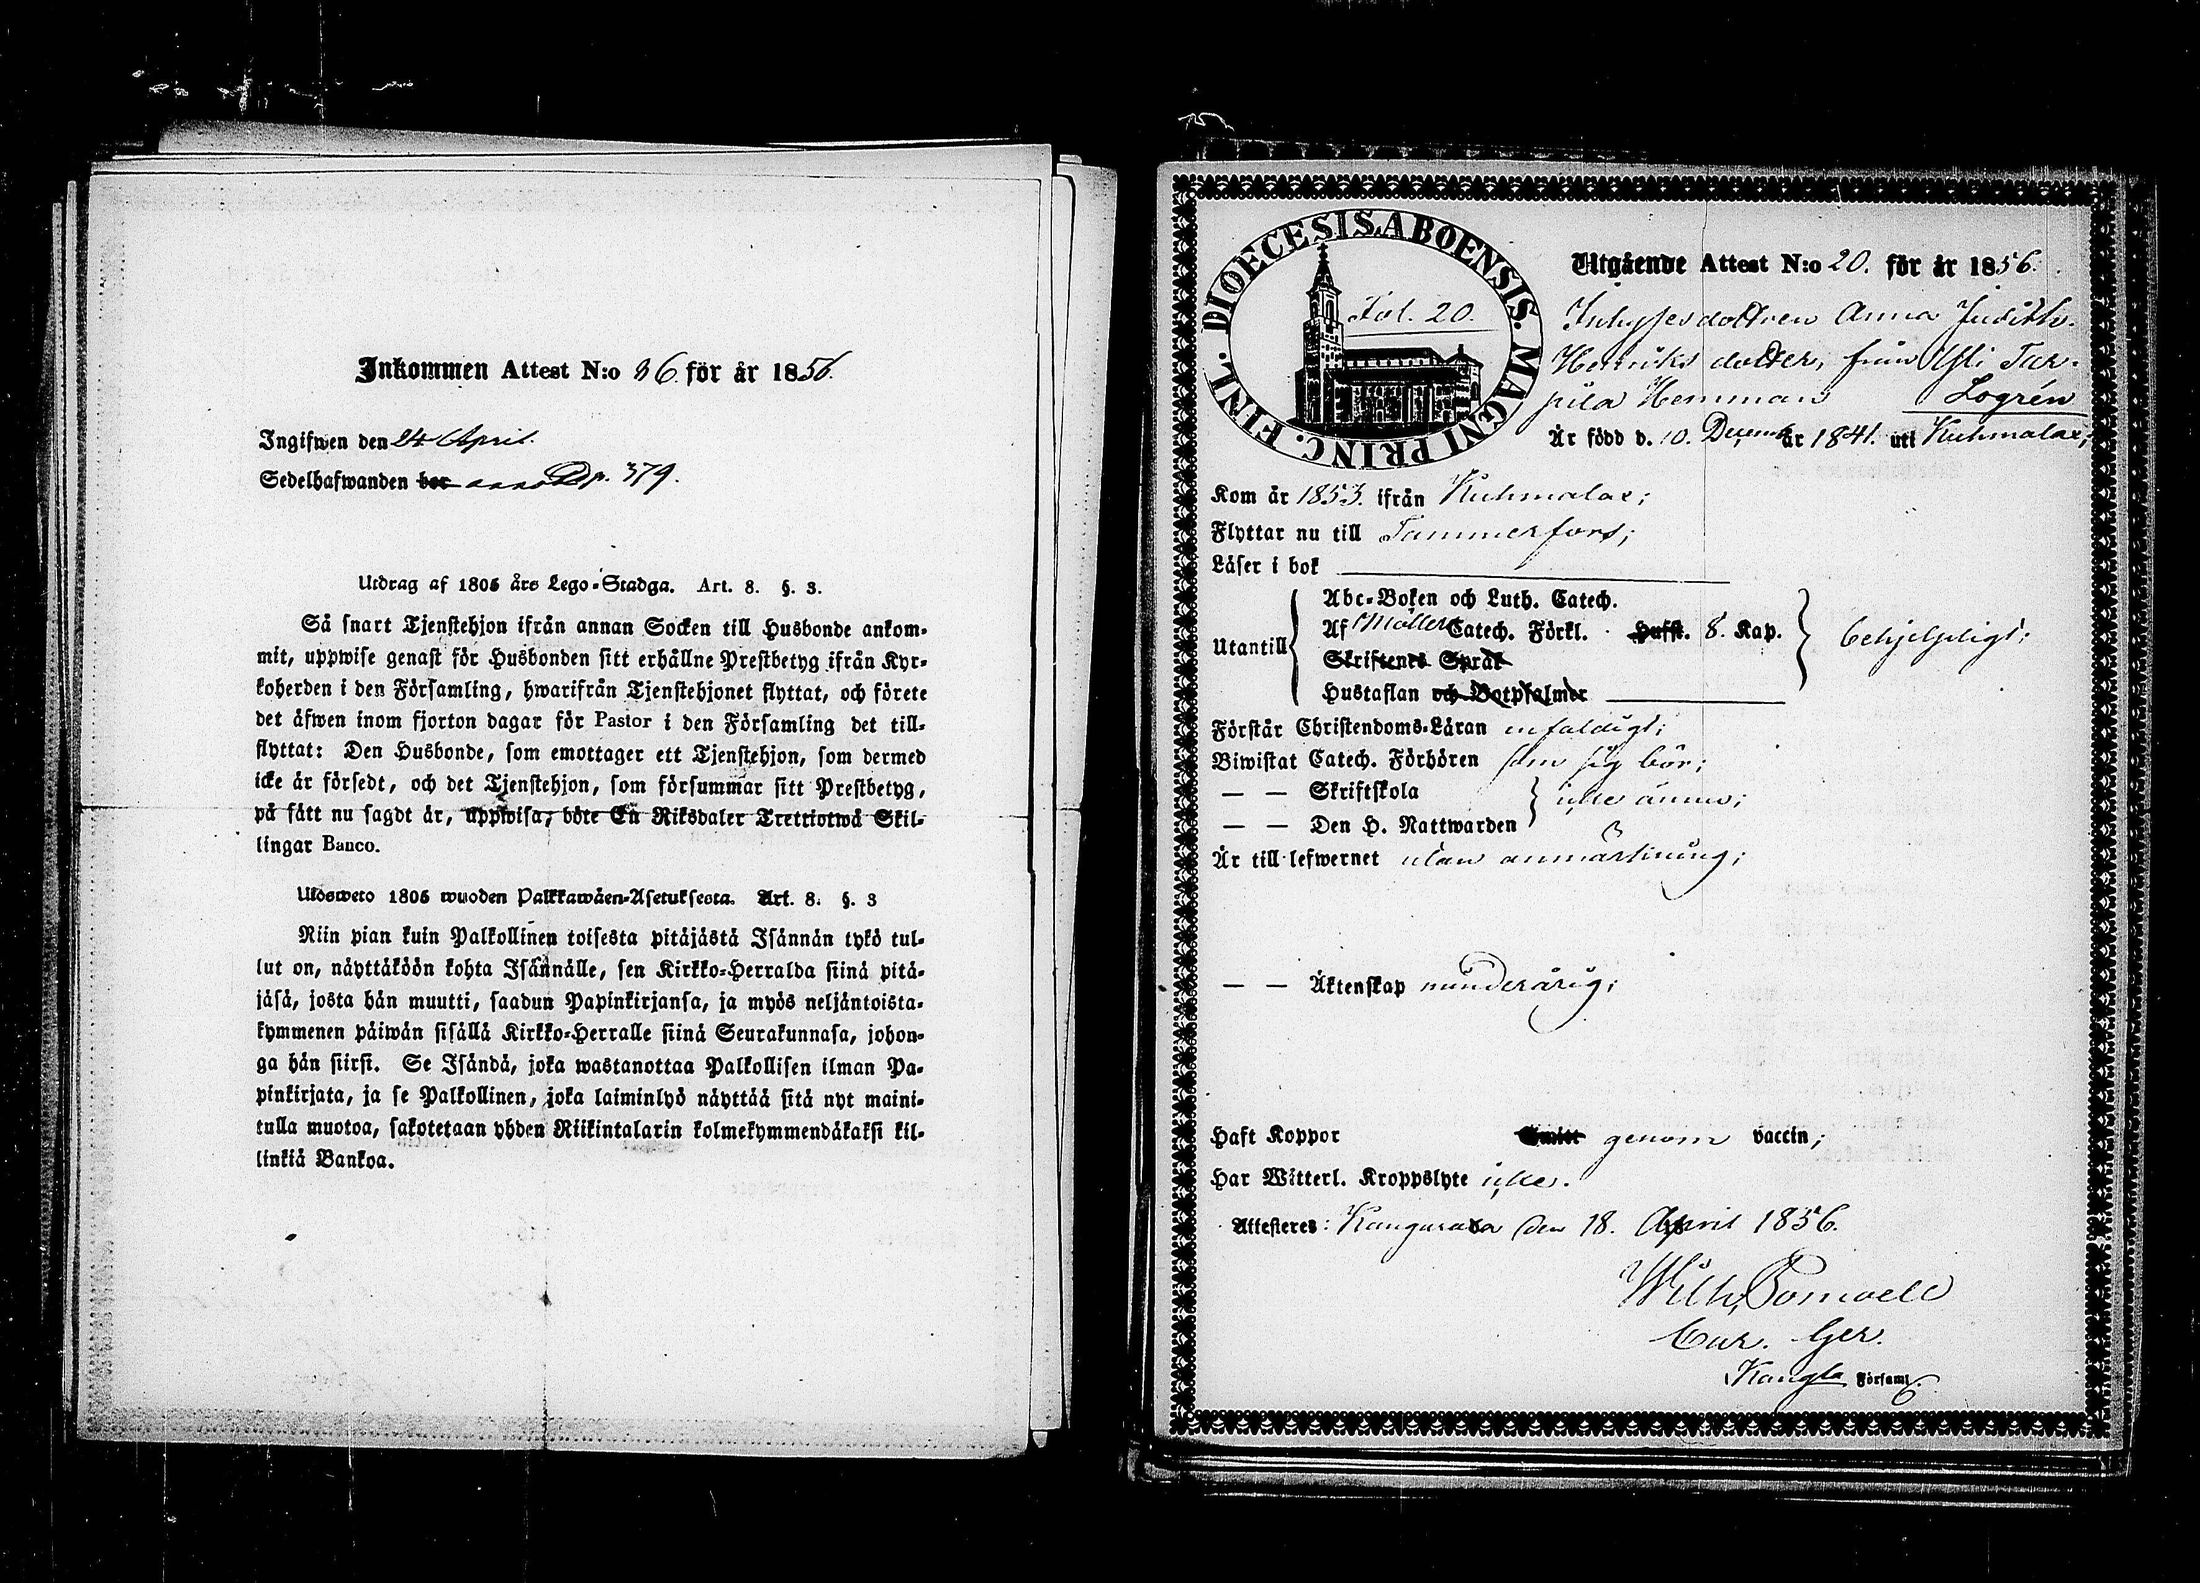 Inkommen Attest N:o 36. för år 1856.
Ingifwen den 24 April.
Sedelhafwanden bor anno p. 379.
Utdrag af 1805 års Lego-Stadga. Art. 8. §. 3.
Så snart Tjenstehjon ifrån annan Socken till Husbonde ankom-
mit, uppwise genast för Husbonden sitt erhållne Prestbetyg ifrån Kyr-
koherden i den Församling, hwarifrån Tjenstehjonet flyttat, och förete
det äfwen inom fjorton dagar för Pastor i den Församling det till-
flyttat: Den Husbonde, som emottager ett Tjenstehjon, som dermed
icke är försedt, och det Tjenstehjon, som försummar sitt Prestbetyg,
på sätt nu sagdt är, uppwisa, böte En Riksdaler Trettiotwå Skil-
lingar Banco.
Ulosweto 1805 wuoden Palkkawäen-Asetuksesta. Art. 8. §. 3
Niin pian kuin Palkollinen toisesta pitäjästä Isännän tykö tul-
lut on, näyttäköön kohta Isännälle, sen Kirkko-Herralda siinä pitä-
jäsä, josta hän muutti, saadun Papinkirjansa, ja myös neljäntoista-
kymmenen päiwän sisällä Kirkko-Herralle siinä Seurakunnasa, johon-
ga hän siirsi. Se Isändä, joka wastanottaa Palkollisen ilman Pa-
pinkirjata, ja se Palkollinen, joka laiminlyö näyttää sitä nyt maini-
tulla muotoa, sakotetaan yhden Riikintalarin kolmekymmendäkaksi kil-
linkiä Bankoa.
DIOECESIS ABOENSIS. MAGNI PRINC. FINL.
Fol. 20.
Utgående Attest N:o 20. för år 1856.
Inhysesdottren Anna Judith
Henriks dotter, från Tar-
pila Hemman Logrén
Är född d. 10. Decemb. år 1841. uti Kuhmalax;
Kom år 1853. ifrån Kuhmalax;
Flyttar nu till Tammerfors;
Läser i bok
Utantill
Abc-Boken och Luth. Catech.
Af Möllers Catech. Förkl. Hufst. 8. Kap.
Skriftenes Språk
Hustaflan och Botpsalmer
behjelpligt;
Förstår Christendoms-Läran enfaldigt;
Biwistat Catech. Förhören som sig bör;
— — Skriftskola
— — Den H. Nattwarden
icke ännu;
Är till lefwernet utan anmärkning;
— — Äktenskap minderårig;
Haft Koppor genom vaccin;
Har Witterl. Kroppslyte icke.
Attesteres: Kangasala den 18. April 1856.
Wilh.
Cur. Ger.
Kangla Församl.